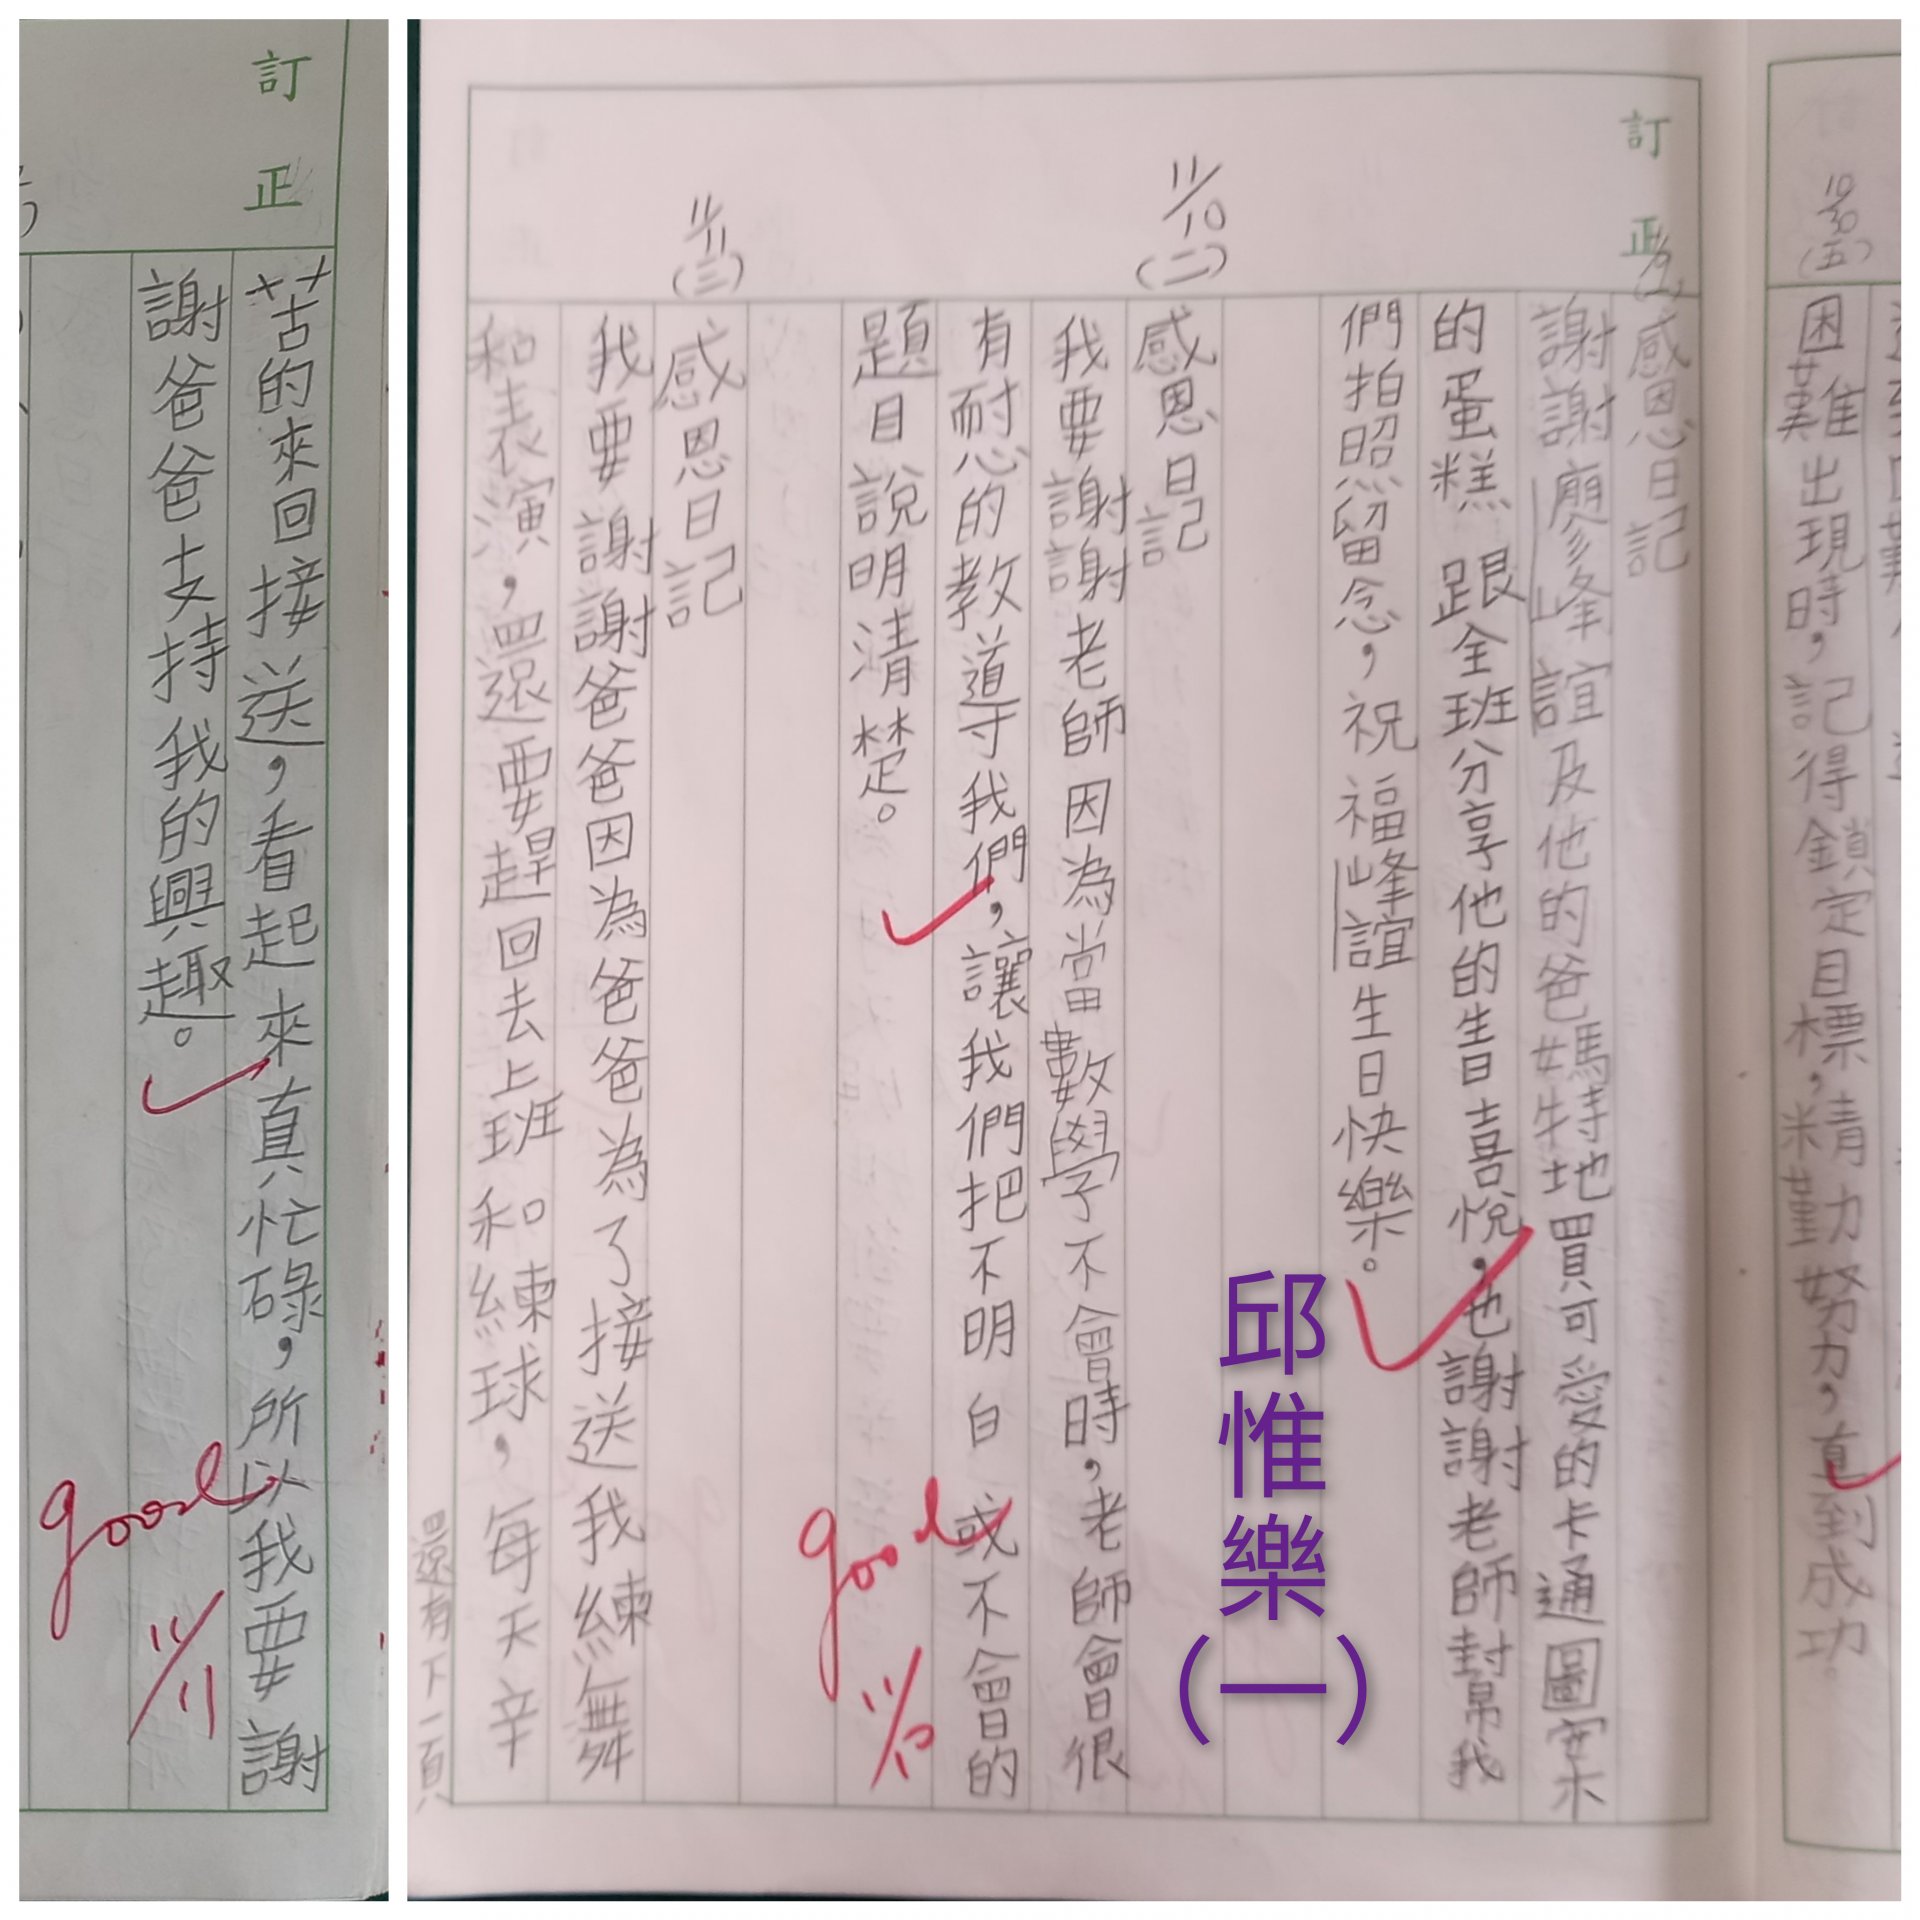 10/30
(五)
困難出現時，記得鎖定目標，精勤努力，直到成功。
訂正
感恩日記
謝謝廖峰誼及他的爸媽特地買可愛的卡通圖案
的蛋糕跟全班分享他的生日喜悅，也謝謝老師封幫我
們拍照留念，祝福峰誼生日快樂。
11/10
(二)
感恩日記
我要謝謝老師因為當數學不會時，老師會很
有耐心的教導我們，讓我們把不明白或不會的
題目說明清楚。
good
11/10
11/11
(三)
感恩日記
我要謝謝爸爸因為爸爸為了接送我練舞
和表演，還要趕回去上班和練球，每天辛
還有下一頁
邱惟樂(一)
訂正
苦的來回接送，看起來真忙碌，所以我要謝
謝爸爸支持我的興趣。
good
11/11